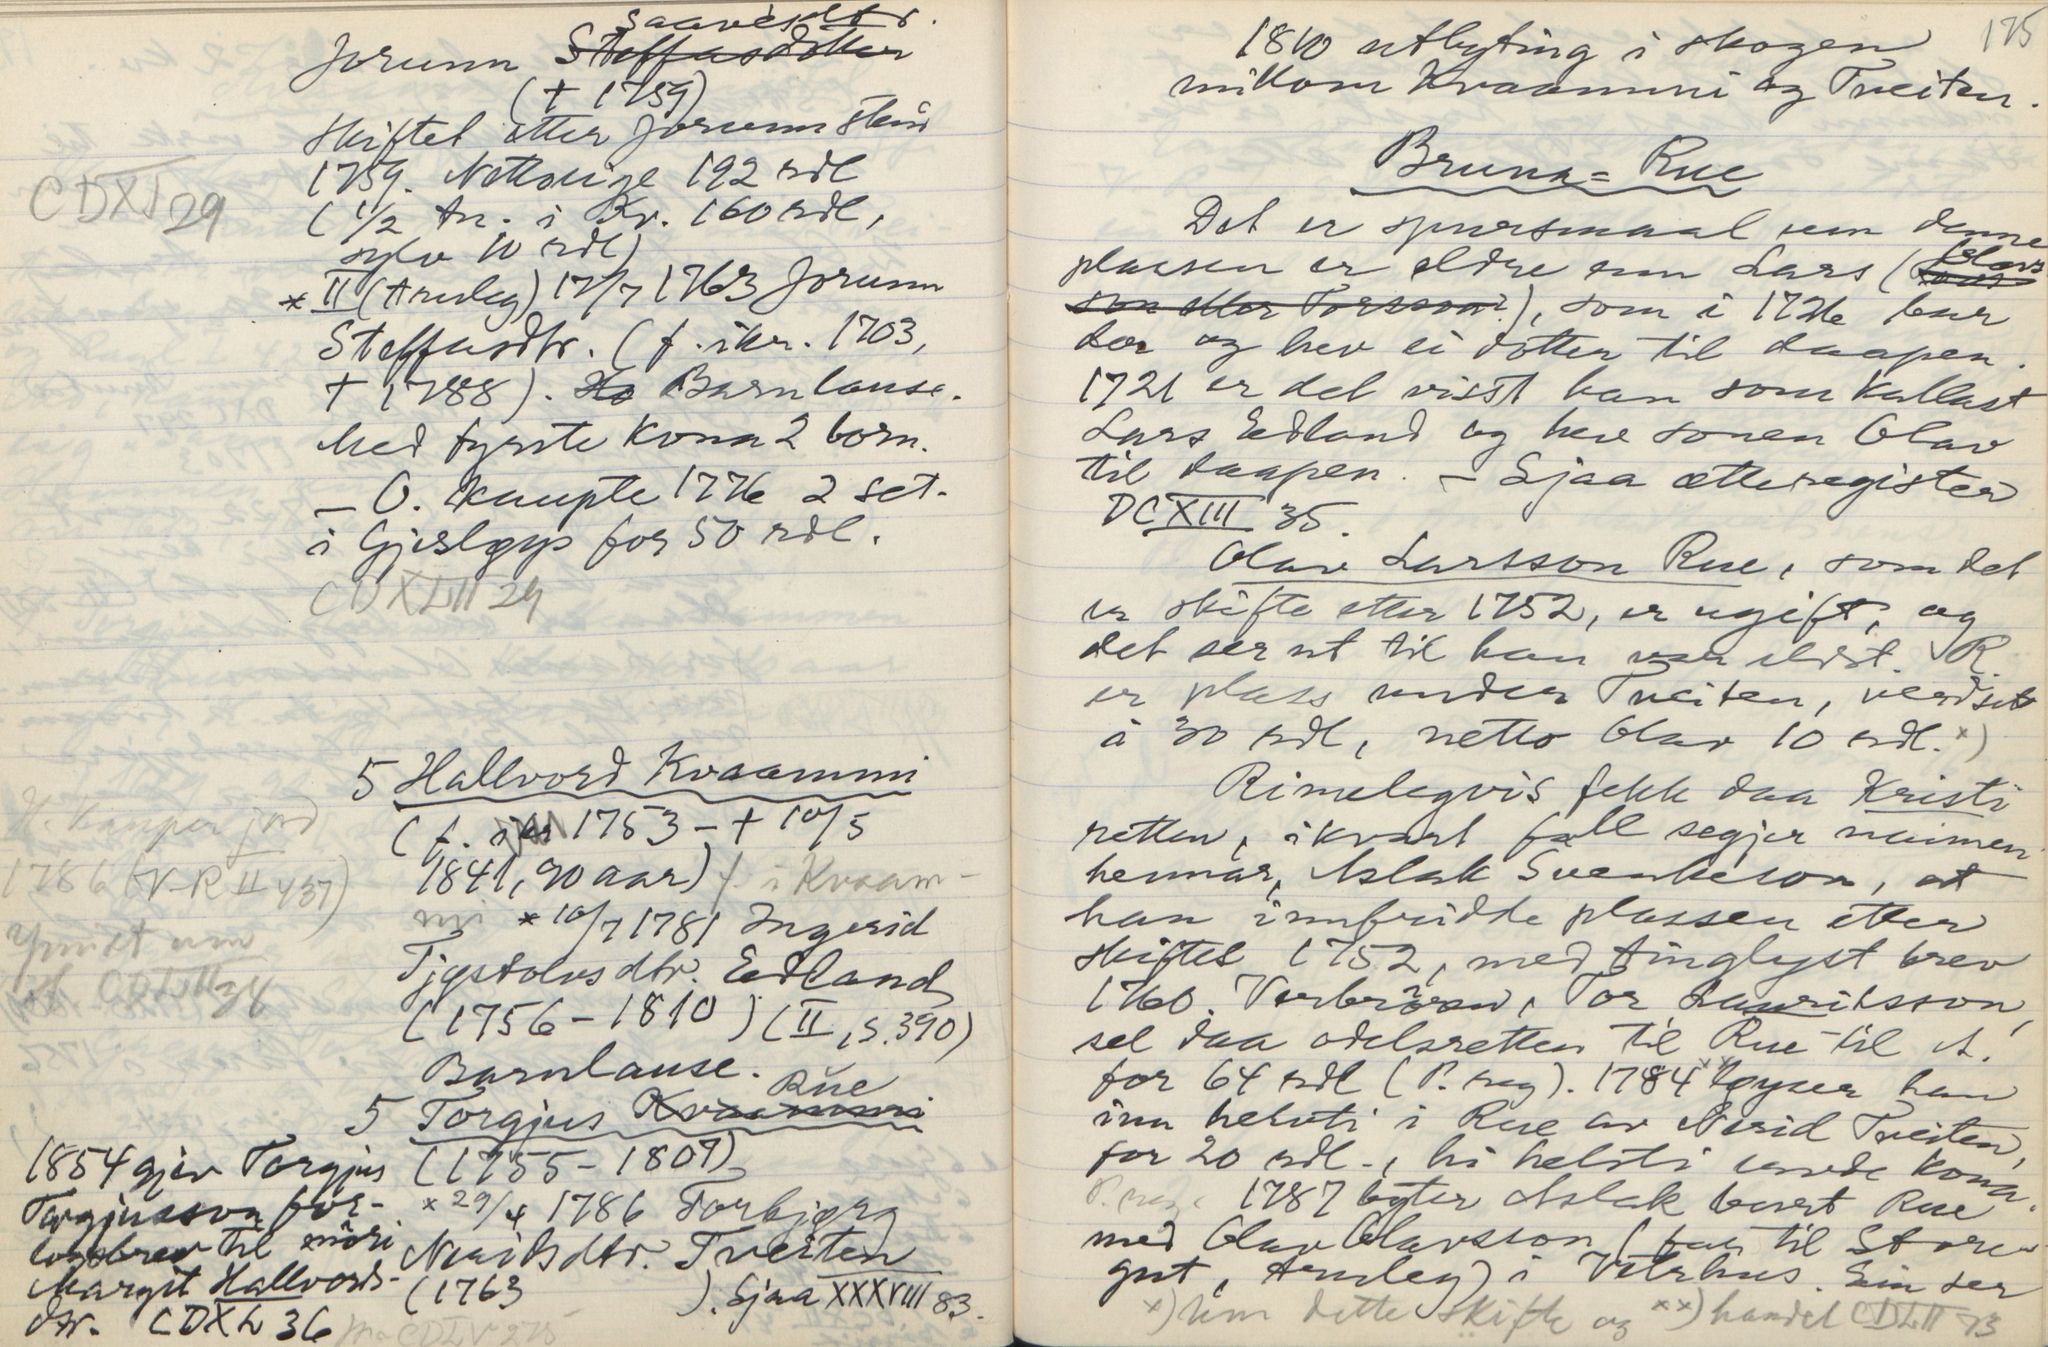 Saavesdtr.
Jorunn Steffasdotter
(† 1759)
Skiftet etter Jorunn stend
1759. Nettoeige 192 rdl
(1/2 An. i Kv. 160 rdl,
sylv 10 rdl)
CDXI 29
* II (Arnleg) 17/7 1763 Jorunn
Steffasdtr. (f. ikr. 1703,
† 1788). Ho Barnlause.
Med fyrste kona 2 born.
– O. kaupte 1776 2 set.
i Gjuvsløyp for 50 rdl.
CDXLII 29
5 Hallvord Kvaammi
(f. ikr 1753 – † 10/5
1841, 90 aar) f. i Kvaam-
mi * 10/7 1781 Ingerid
Tjøstolvsdtr. Edland
(1756 – 1810) (II, s. 390)
Barnlause.
H. kauper jord
1786 (V-R II 437)
Ymist um
CDLII 34
Rue
5 Torgjus Kvaammi
(1755 – 1809)
* 29/4 1786 Torbjørg
Neridsdtr. Tveiten
(1763 ). Sjaa XXXVIII 83.
1854 gjev Torgjus
Torgjusson for-
lovsbrev til
Margit Hallvords-
dtr. CDXL 36
CDLV 275
175
1810 utbyting i skogen
millom Kvaammi og Tveiten.
Bruna = Rue
Det er spursmaal um denne
plassen er eldre enn Lars (Olavs
son eller Torsson?), som i 1726 bur
der og hev ei dotter til daapen.
1721 er det visst han som kallast
Lars Edland og hev sonen Olav
til daapen. – Sjaa ætteregister
DCXIII 35.
Olav Larsson Rue, som det
er skifte etter 1752, er ugift, og
det ser ut til han var eldst. R.
er plass under Tveiten, verdsett
à 30 rdl, netto Olav 10 rdl. x)
Rimelegvis fekk daa Kristi
retten, i kvart fall segjer
hennar, Aslak Svenkeson, at
han innfridde plassen etter
skiftet 1752, med tinglyst brev
1760. Verbroren, Tor Lauritsson,
sel daa odelsretten til Rue til A.
for 64 rdl (P. reg). 1784 xx) løyser han
inn helvti i Rue av Nerid Tveiten,
for 20 rdl., hi helvti
P. reg. 1787 byter Aslak burt Rue
med Olav Olavsson (far til Store-
gut, Arnleg) i Vitrhus. Ein ser
x) Um dette skifte og xx) handel CDLII 73